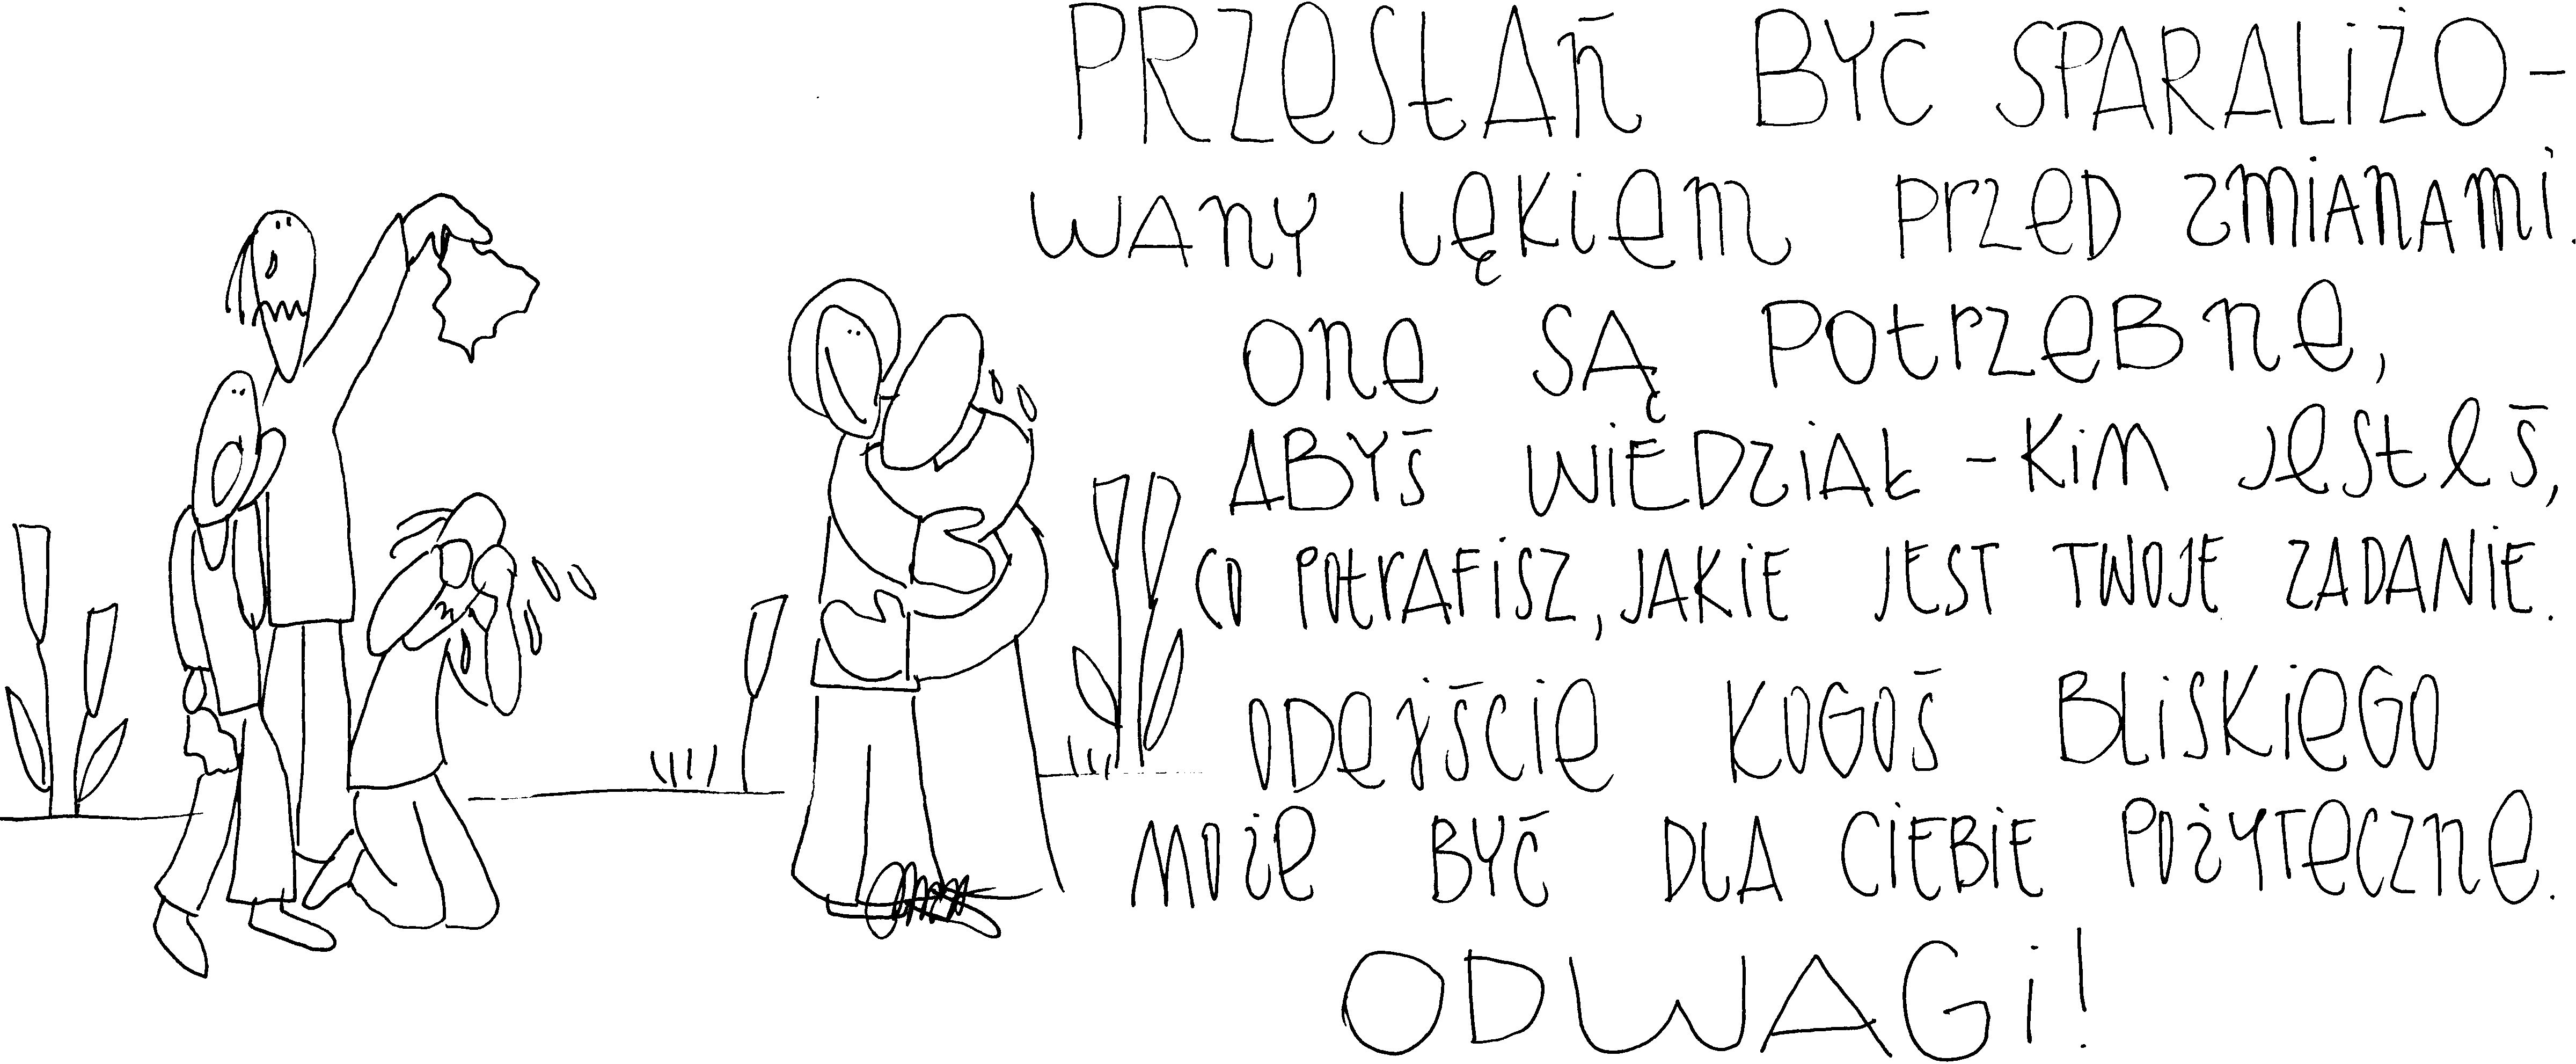 PRZESTAŃ BYĆ SPARALIŻO-
WANY LĘKIEM PRZED ZMIANAMI.
ONE SĄ POTRZEBNE,
ABYŚ WIEDZIAŁ - KIM JESTEŚ,
CO POTRAFISZ, JAKIE JEST TWOJE ZADANIE.
ODEJŚCIE KOGOŚ BLISKIEGO
MOŻE BYĆ DLA CIEBIE POŻYTECZNE.
ODWAGI!